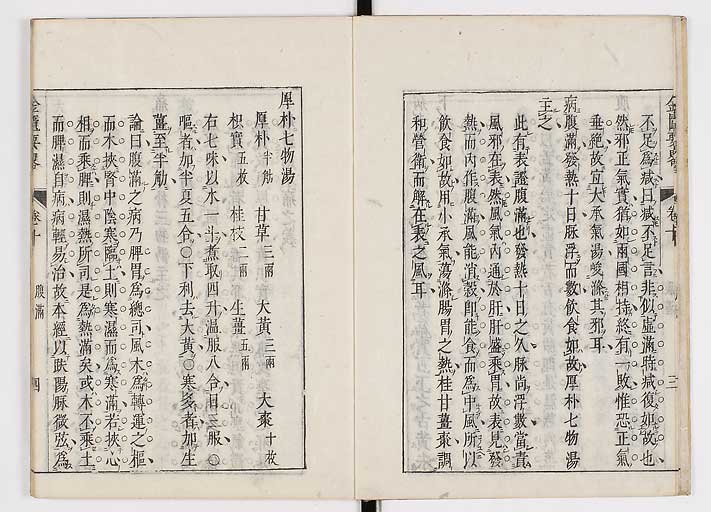 金匱要畧 卷十 三
不足為減曰減不足言非似虛滿時減復如故也
然邪正氣實猶如兩國相持終有一敗惟恐正氣
垂絕故宜大承氣湯峻滌其邪耳
病腹滿發熱十日脉浮而數飲食如故厚朴七物湯
主之
此有表證腹滿也發熱十日之久脉尚浮數當責
風邪在表然風氣內通於肝肝盛乘胃故表見發
熱而內作腹滿風能消穀即能食而為中風所以
飲食如故用小承氣蕩滌腸胃之熱桂甘薑棗調
和營衛而解在表之風耳
厚朴七物湯
厚朴半觔 甘草三兩 大黃三兩 大棗十枚
枳實五枚 桂枝二兩 生薑五兩
右七味以水一斗煮取四升溫服八合日三服○
嘔者加半夏五合○下利去大黃○寒多者加生
薑至半觔
論曰腹滿之病乃脾胃為總司風木為轉運之樞
而木挾腎中陰寒臨土則寒濕而為寒滿若挾心
相而乘脾則濕熱所司是為熱滿矣或木不乘土
而脾濕自病病輕易治故本經以趺陽脉微弦為
金匱要畧 卷十 腹滿 四